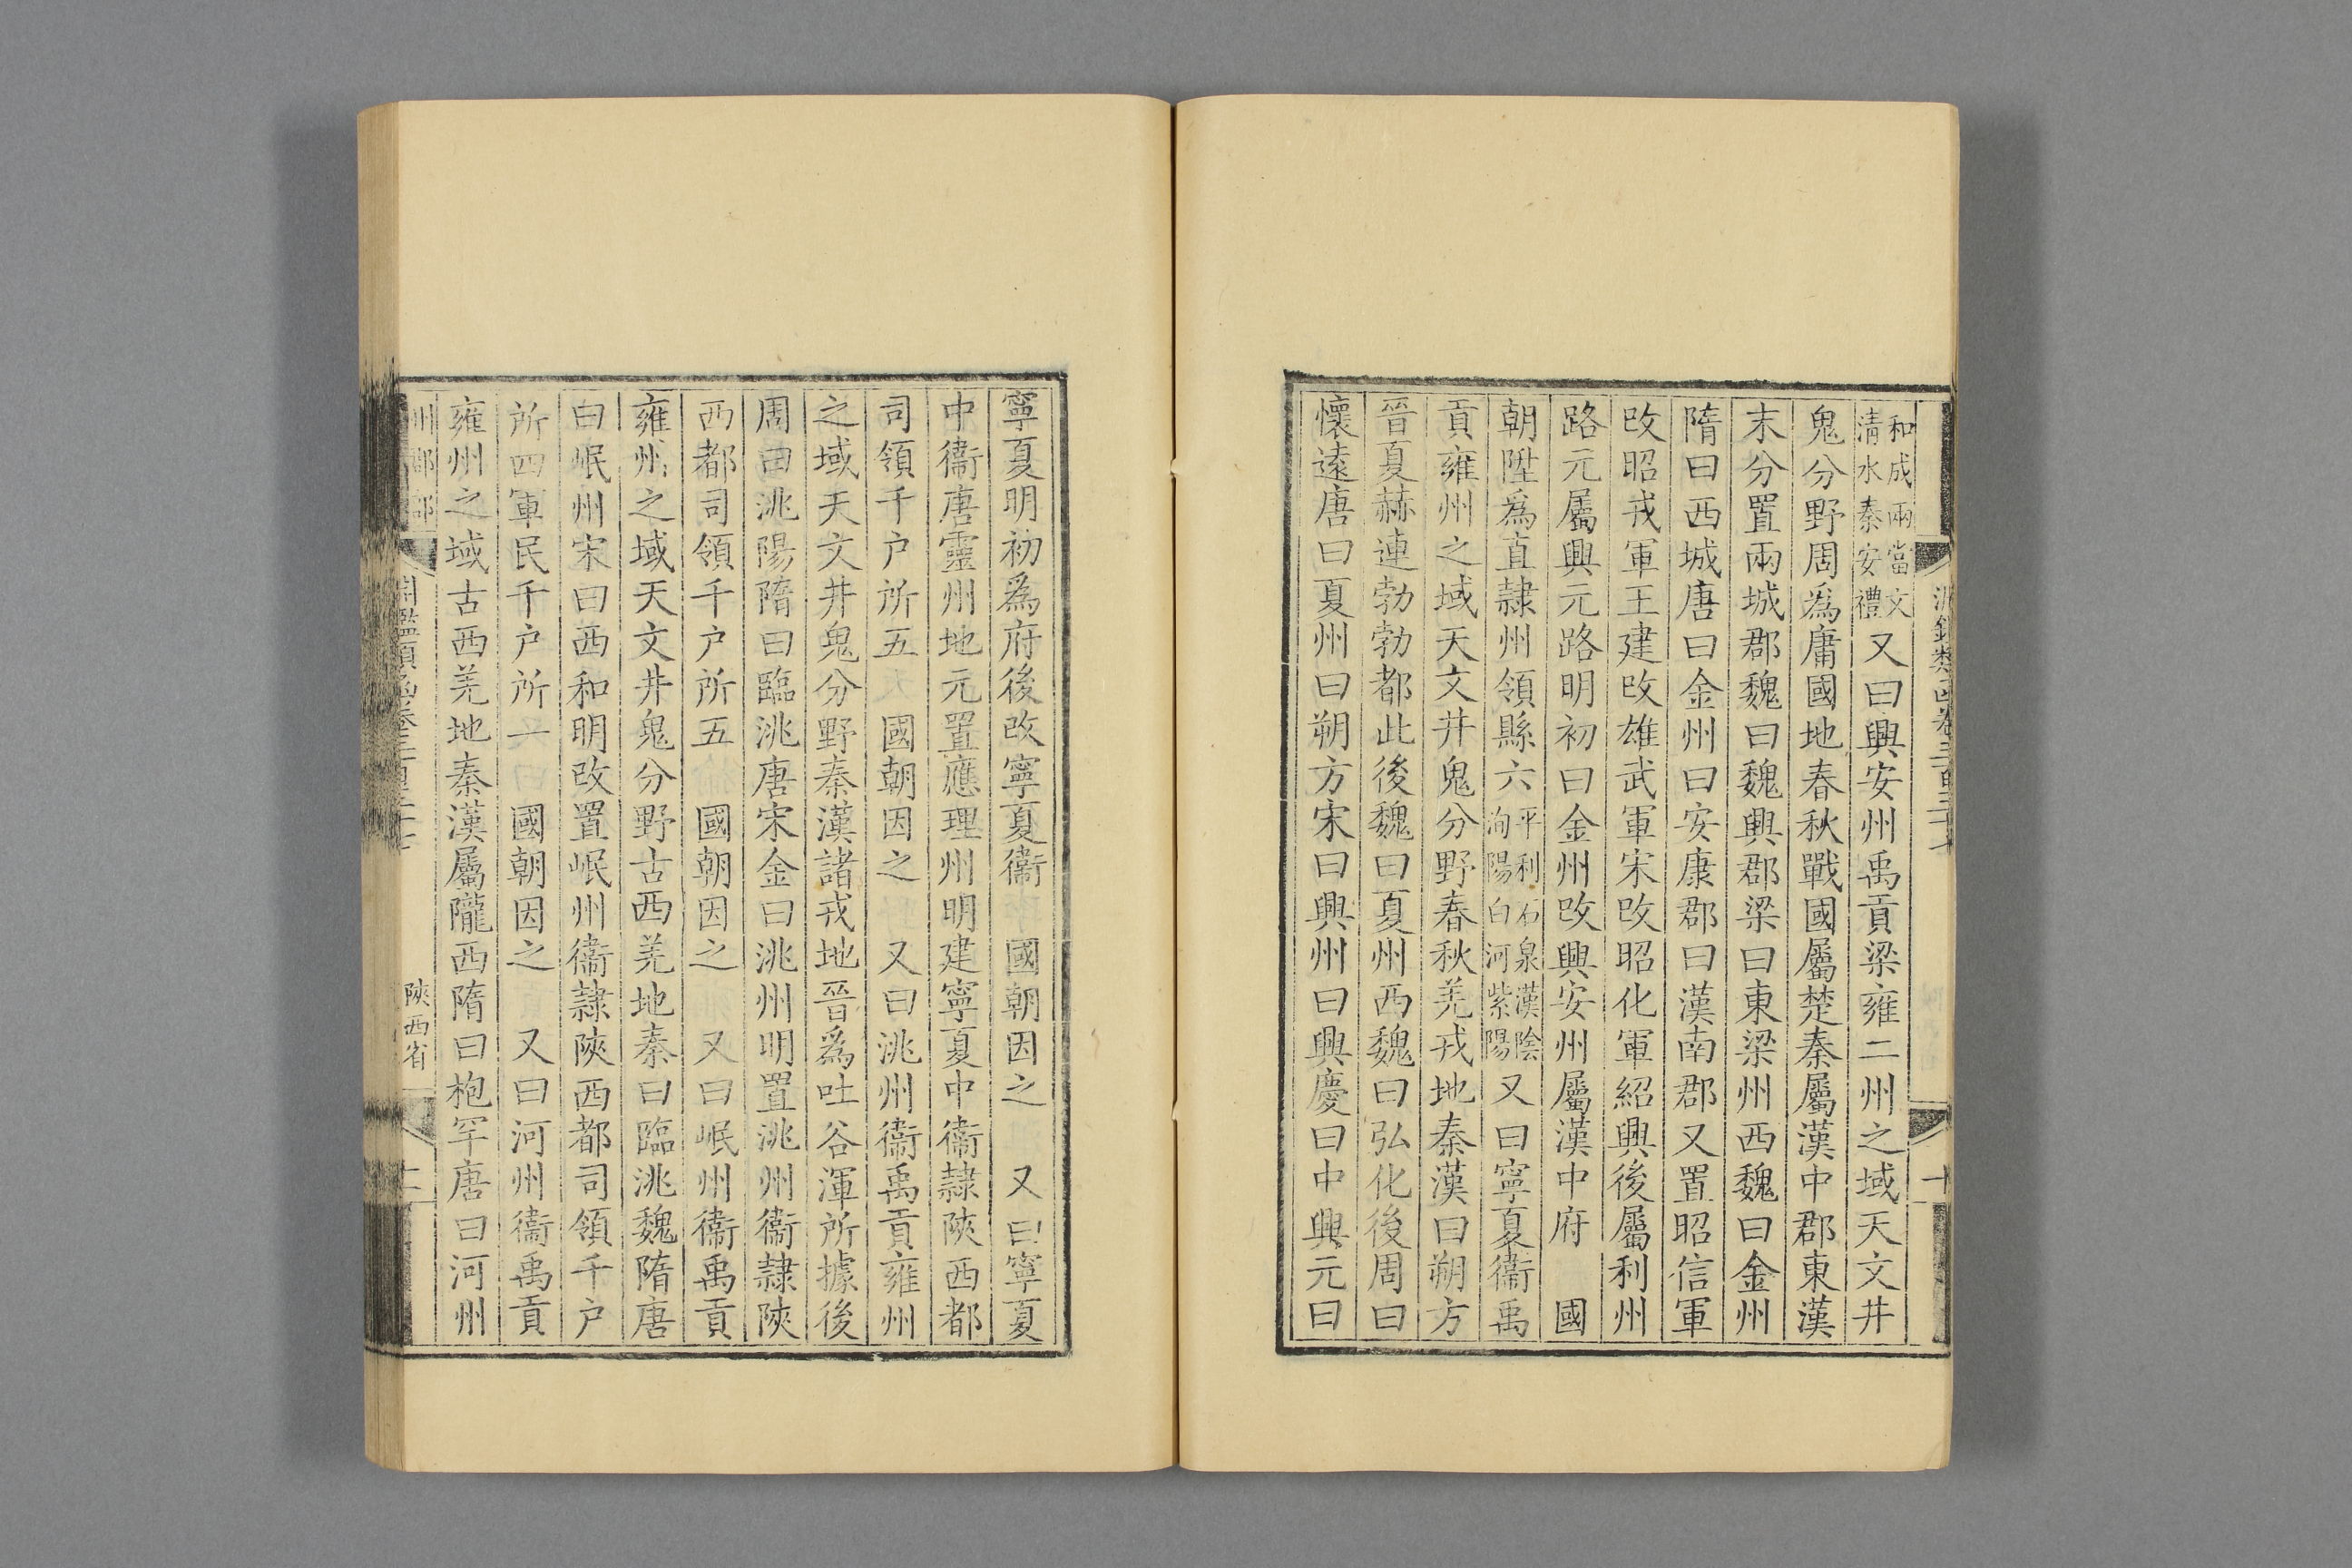 和成兩當文
清水秦安禮又曰興安州禹貢梁雍二州之域天文井
鬼分野周爲庸國地春秋戰國屬楚秦屬漢中郡東漢
末分置兩城郡魏曰魏興郡梁曰東梁州西魏曰金州
隋曰西城唐曰金州曰安康郡曰漢南郡又置昭信軍
改昭戎軍王建改雄武軍宋改昭化軍紹興後屬利州
路元屬興元路明初曰金州改興安州屬漢中府 國
朝陞爲直隷州領縣六平利石泉漢陰洵陽白河紫陽又曰寧夏衞禹
貢雍州之域天文井鬼分野春秋羌戎地秦漢曰朔方
晉夏赫連勃勃都此後魏曰夏州西魏曰弘化後周曰
懷遠唐曰夏州曰朔方宋曰興州曰興慶曰中興元曰
寧夏明初爲府後改寧夏衞 國朝因之 又曰寧夏
中衞唐靈州地元置應理州明建寧夏中衞隷陝西都
司領千户所五 國朝因之 又曰洮州衞禹貢雍州
之域天文井鬼分野秦漢諸戎地晉爲吐谷渾所據後
周曰洮陽隋曰臨洮唐宋金曰洮州明置洮州衞隷陝
西都司領千户所五 國朝因之 又曰岷州衞禹貢
雍州之域天文井鬼分野古西羌地秦曰臨洮魏隋唐
曰岷州宋曰西和明改置岷州衞隷陝西都司領千户
所四軍民千户所一 國朝因之 又曰河州衞禹貢
雍州之域古西羌地秦漢屬隴西隋曰枹罕唐曰河州
州郡部
陝西省